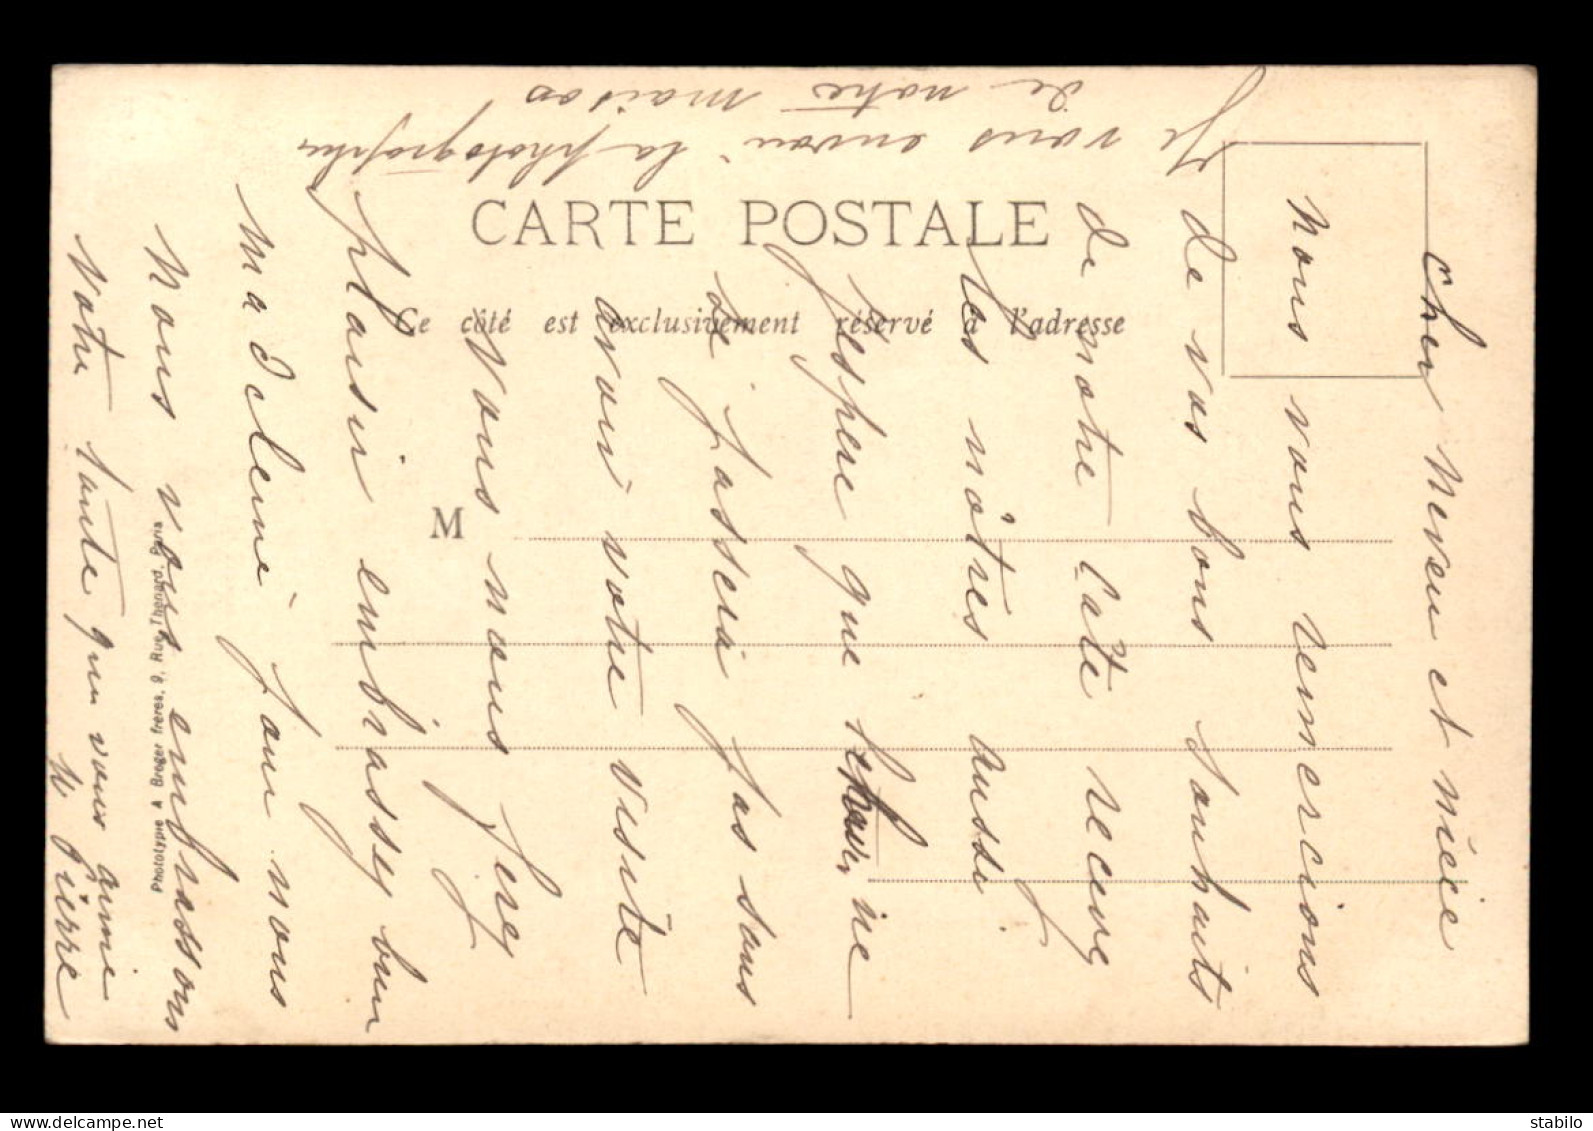 CARTE POSTALE
Ce côté est exclusivement réservé à l'adresse
M
Phototypie A Breger frères, 9, Rue Thenard, Paris
Cher Neveu et nièce
Nous vous remercions
de vos bons souhaits
de notre côté recevez
les nôtres aussi
J'espère que ne
se passera pas sans
avoir votre visite
Vous nous ferez
plaisir embrassez bien
Madeleine pour nous
Nous vous embrassons
Votre tante qui vous aime
Pierre
Je vous envoi la photographie
de notre maison
stabilo